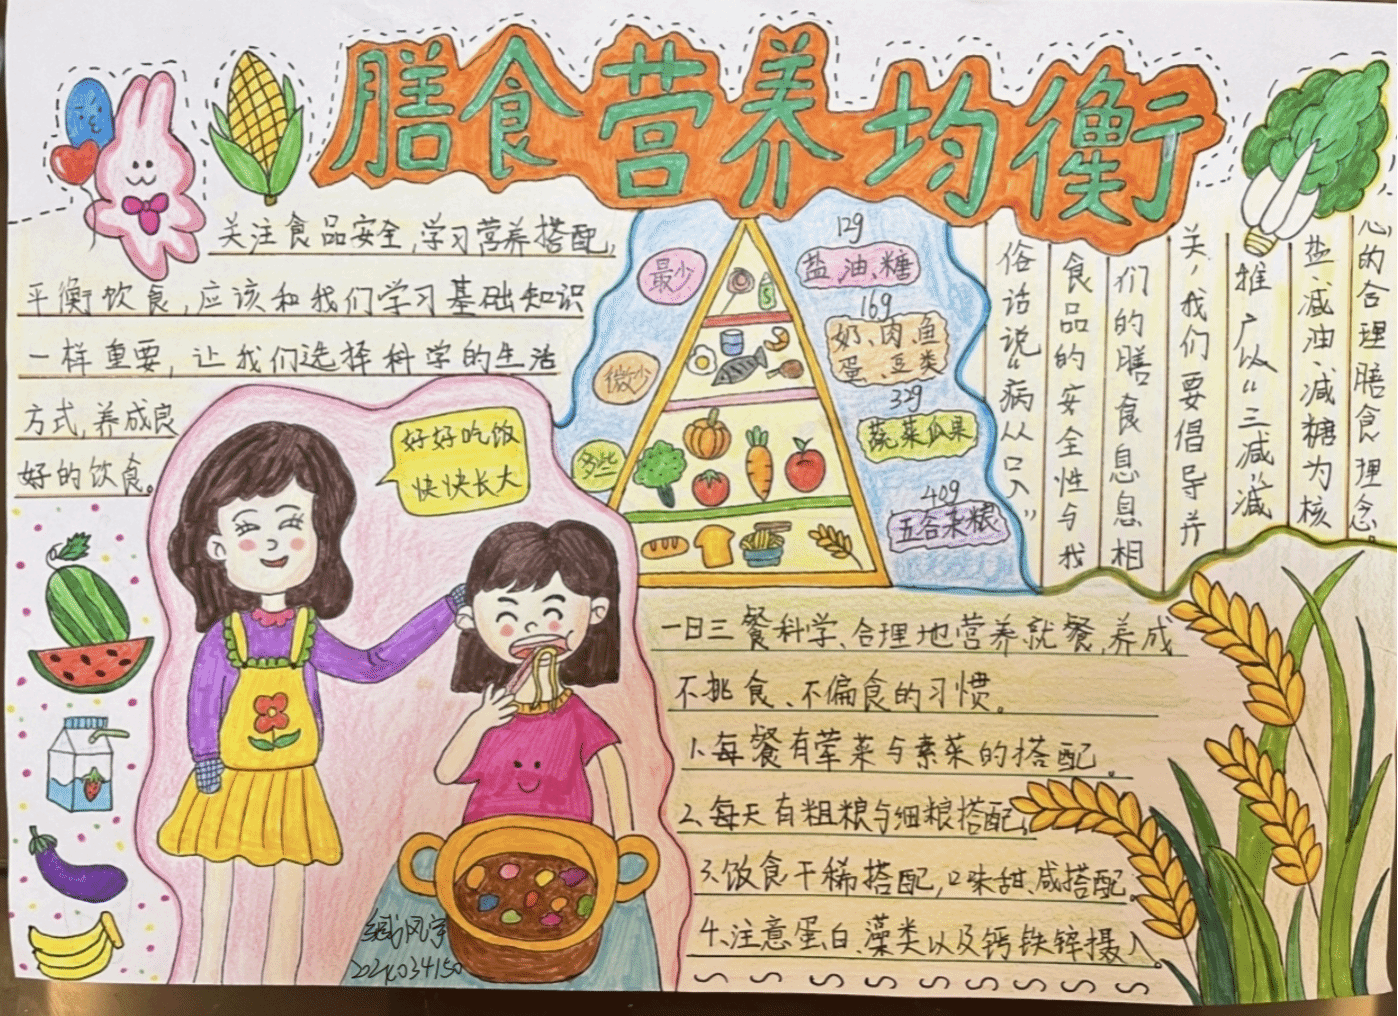 膳食营养均衡
关注食品安全,学习营养搭配,
平衡饮食,应该和我们学习基础知识
一样重要,让我们选择科学的生活
方式,养成良
好的饮食。
好好吃饭
快快长大
最少
微少
多些
12g
盐、油、糖
16g
奶、肉、鱼
蛋、豆类
32g
蔬菜瓜果
40g
五谷未粮
俗话说“病从口入”
食品的安全性与我
们的膳食息息相
关,我们要倡导并
推广以“三减减
盐减油减糖为核
心的合理膳食理念。
一日三餐科学、合理地营养就餐,养成
不挑食、不偏食的习惯。
1.每餐有荤菜与素菜的搭配。
2.每天有粗粮与细粮搭配。
3.饭食干稀搭配,口味甜、咸搭配。
4.注意蛋白、藻类以及钙铁锌摄入。